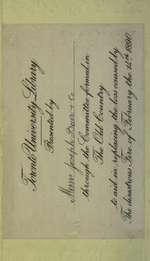 Toronto University Library
Presented by
Messrs Joseph Baer & Co
through the Committee formed in
The Old Country
to aid in replacing the loss caused by
The disastrous Fire of February the 14th 1890